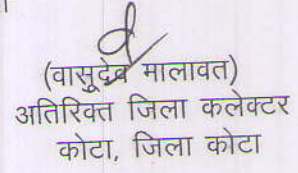 (वासुदेव मालावत)
अतिरिक्त जिला कलेक्टर
कोटा, जिला कोटा